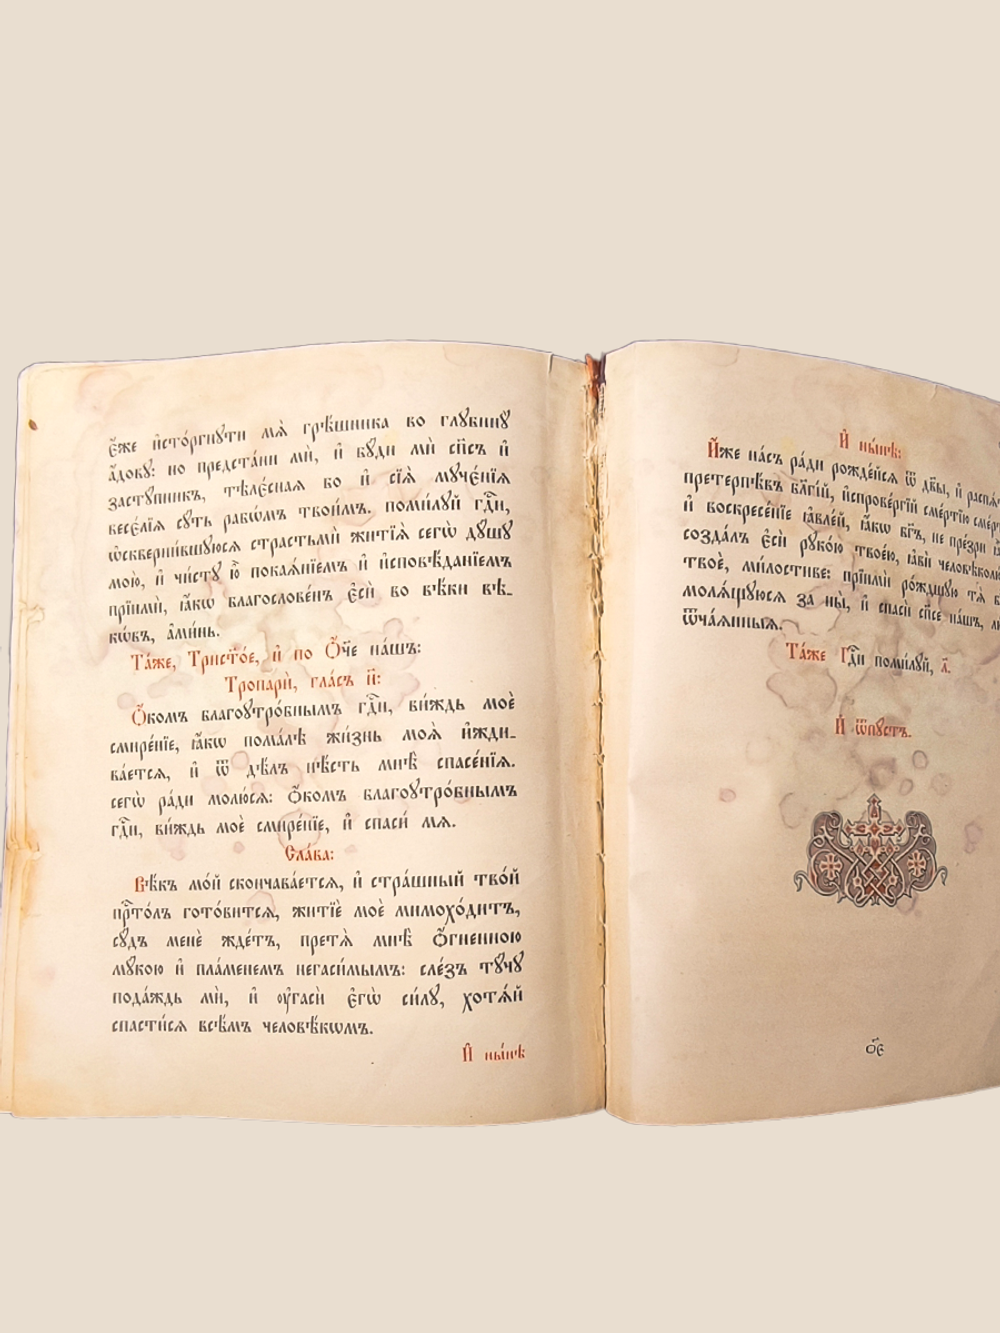 є҆́же и҆сто́ргнꙋти мѧ̀ грѣ́шника во глꙋбинꙋ̀
а҆́довꙋ: но предста́ни мѝ, и҆ бꙋ́ди мѝ сп҃съ и҆
застꙋ́пникъ, тѣлє́сная бо и҆ сїѧ̑ мꙋчє́нїѧ
весє́лїѧ сꙋ́ть рабѡ́мъ твои̑мъ. поми́лꙋй гдⷭ҇и,
ѡ҆скверни́вшꙋюсѧ страстьмѝ житїѧ̀ сегѡ̀ дꙋ́шꙋ
мою̀, и҆ чи́стꙋ ю҆̀ покаѧ́нїемъ и҆ и҆сповѣ́данїемъ
прїимѝ, ꙗ҆́кѡ благослове́нъ є҆сѝ во вѣ́ки вѣ-
кѡ́въ, а҆ми́нь.
Та́же, Трист҃о́е, и҆ по Ѻ҆́ч҃е на́шъ:
Тропарѝ, гла́съ и҃:
Ѻ҆́комъ благоꙋтро́бнымъ гдⷭ҇и, ви́ждь моѐ
смире́нїе, ꙗ҆́кѡ пома́лѣ жи́знь моѧ̀ и҆жди-
ва́етсѧ, и҆ ѿ дѣ́лъ нѣ́сть мнѣ̀ спасе́нїѧ.
сегѡ̀ ра́ди молю́сѧ: ѻ҆́комъ благоꙋтро́бнымъ
гдⷭ҇и, ви́ждь моѐ смире́нїе, и҆ спасѝ мѧ̀.
Сла́ва:
Вѣ́къ мо́й скончава́етсѧ, и҆ стра́шный тво́й
прⷭ҇то́лъ гото́витсѧ, житїѐ моѐ мимохо́дитъ,
сꙋ́дъ менѐ жде́тъ, претѧ̀ мнѣ̀ ѻ҆́гненною
мꙋ́кою и҆ пла́менемъ негаси́мымъ: сле́зъ тꙋ́чꙋ
пода́ждь мѝ, и҆ ᲂу҆гасѝ є҆гѡ̀ си́лꙋ, хотѧ́й
спасти́сѧ всѣ̑мъ человѣ́кѡмъ.
И҆ ны́нѣ
И҆ ны́нѣ:
И҆́же на́съ ра́ди рожде́йсѧ ѿ дв҃ы, и҆
претерпѣ́въ бл҃гі́й, и҆спрове́ргїй сме́ртїю
и҆ воскресе́нїе ꙗ҆вле́й, ꙗ҆́кѡ бг҃ъ, не пре́зри
созда́лъ є҆сѝ рꙋко́ю твое́ю, ꙗ҆вѝ
твоѐ, ми́лостиве: прїимѝ ро́ждшꙋю тѧ̀
молѧ́щꙋюсѧ за ны̀, и҆ спасѝ сп҃се на́шъ,
ѿча́ѧнныѧ.
Та́же Гдⷭ҇и поми́лꙋй, л҃.
И҆ ѿпꙋ́стъ.
ѻ҃є